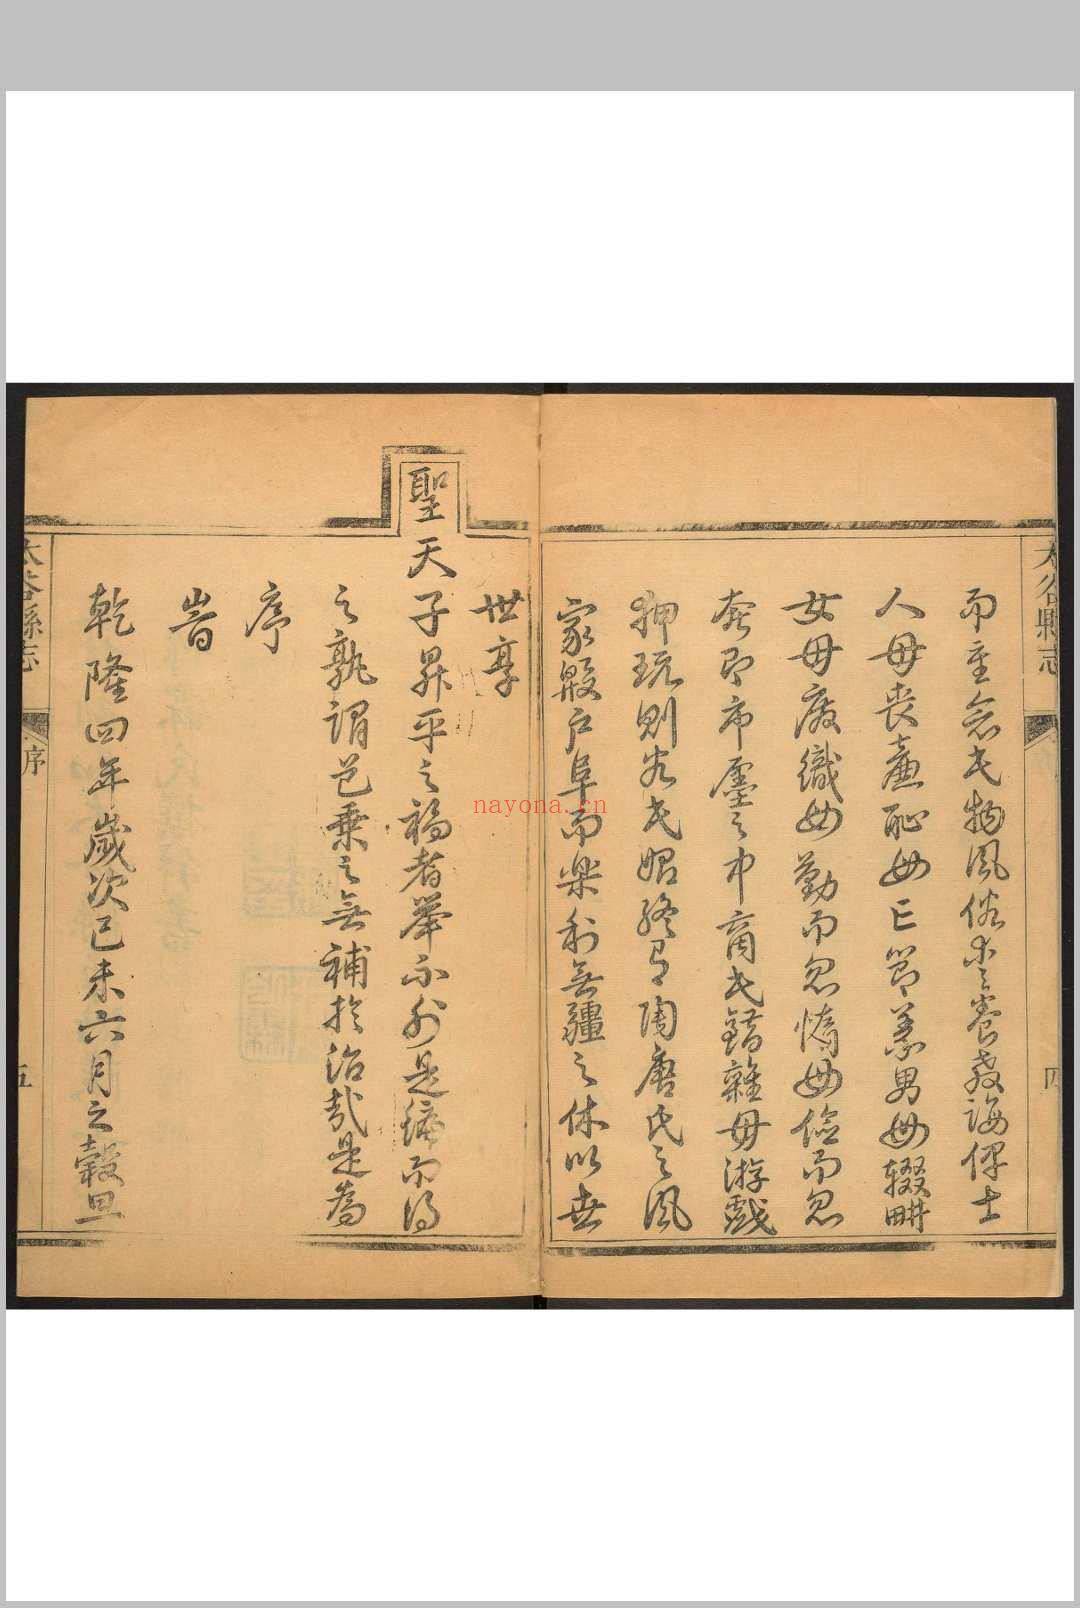 太谷縣志
序
四
而重念民物風俗 養教誨俾士
人毋喪廉恥毋亡節義男毋輟耕
女毋廢織毋勤而忽惰毋儉而忽
奢即市廛之中商民錯雜毋游戲
狎玩則谷民 終有陶唐氏之風
家殷戶阜而樂利無疆之休以世
世享
聖天子昇平之福者舉不外是編而得
之孰謂邑乘之無補於治哉是為
序
時
乾隆四年歲次己未六月之穀旦
太谷縣志
序
五
nayona.cn